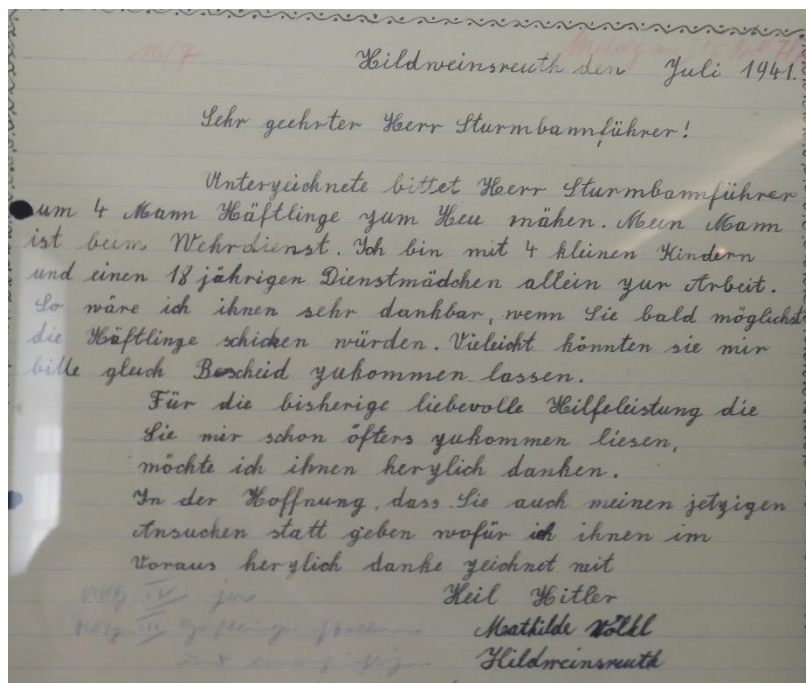 16/7
Hildweinsreuth den Juli 1941.
Sehr geehrter Herr Sturmbannführer!
Unterzeichnete bittet Herr Sturmbannführer
um 4 Mann Häftlinge zum Heu mähen. Mein Mann
ist beim Wehrdienst. Ich bin mit 4 kleinen Kindern
und einen 18 jährigen Dienstmädchen allein zur Arbeit.
So wäre ich ihnen sehr dankbar, wenn Sie bald möglichst
die Häftlinge schicken würden. Vieleicht könnten sie mir
bitte gleich Bescheid zukommen lassen.
Für die bisherige liebevolle Hilfeleistung die
Sie mir schon öfters zukommen liesen,
möchte ich ihnen herzlich danken.
In der Hoffnung, dass Sie auch meinen jetzigen
Ansuchen statt geben wofür ich ihnen im
Voraus herzlich danke zeichnet mit
Heil Hitler
Mathilde Völkl
Hildweinsreuth